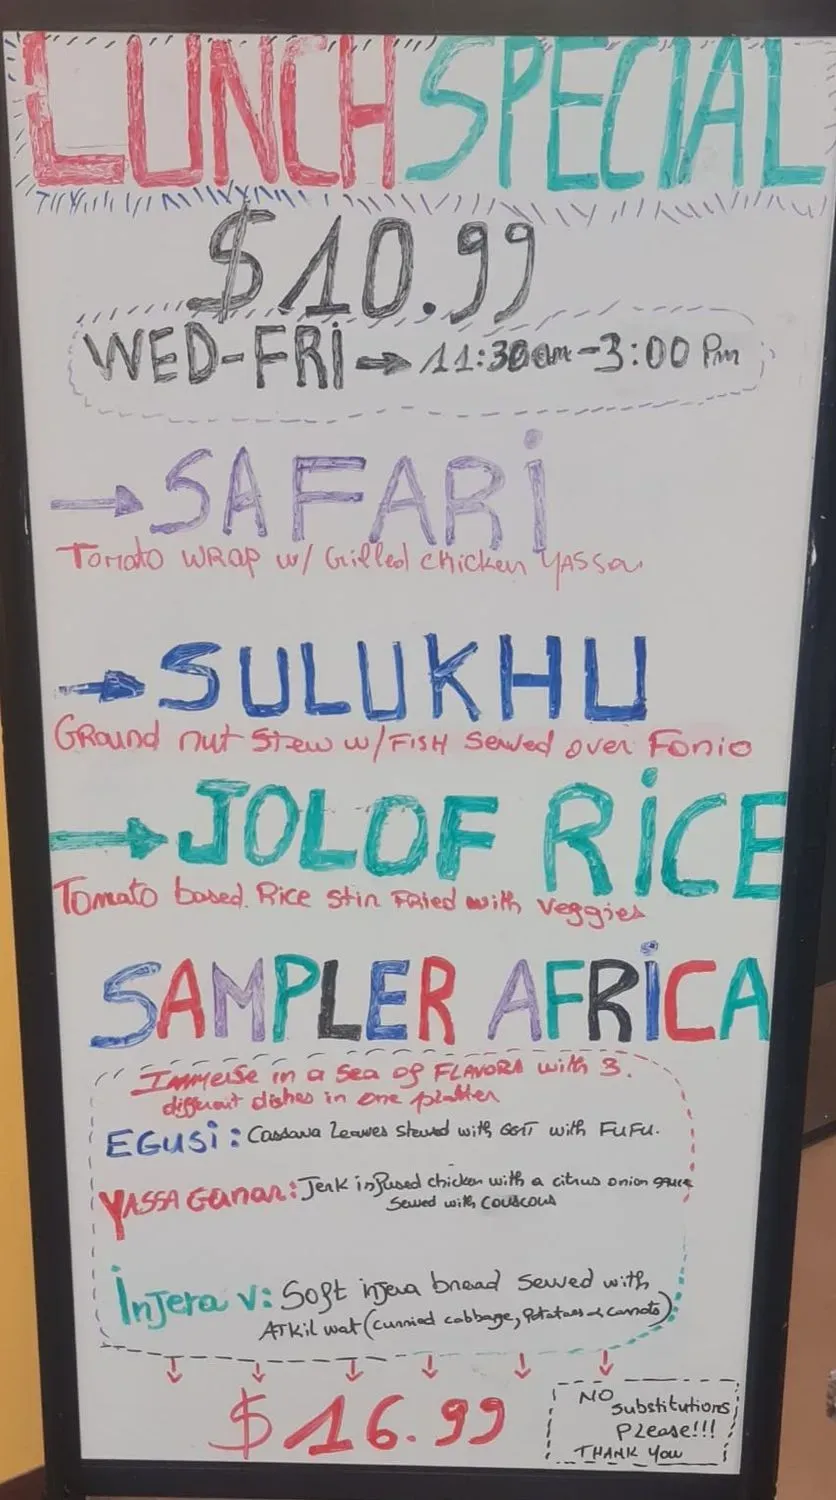 LUNCH SPECIAL
$10.99
WED-FRi → 11:30am-3:00 Pm
→ SAFARi
Tomato WRAP w/ Grilled chicken YASSA
→ SULUKHU
GROUND nut Stew w/ FISH Served over Fonio
→ JOLOF RiCE
Tomato based Rice Stir FRied with Veggies
SAMPLER AFRiCA
Immerse in a Sea of FLAVORS with 3
different dishes in one platter
EGUSi: Cassava Leaves stewed with GOAT with FUFU.
YASSA Ganar: Jerk infused chicken with a citrus onion sauce
Served with couscous
Injera V: Soft injera bread Served with
ATKil wat (curried cabbage, Potatoes & carrots)
$16.99
NO
Substitutions
Please!!!
THANK You